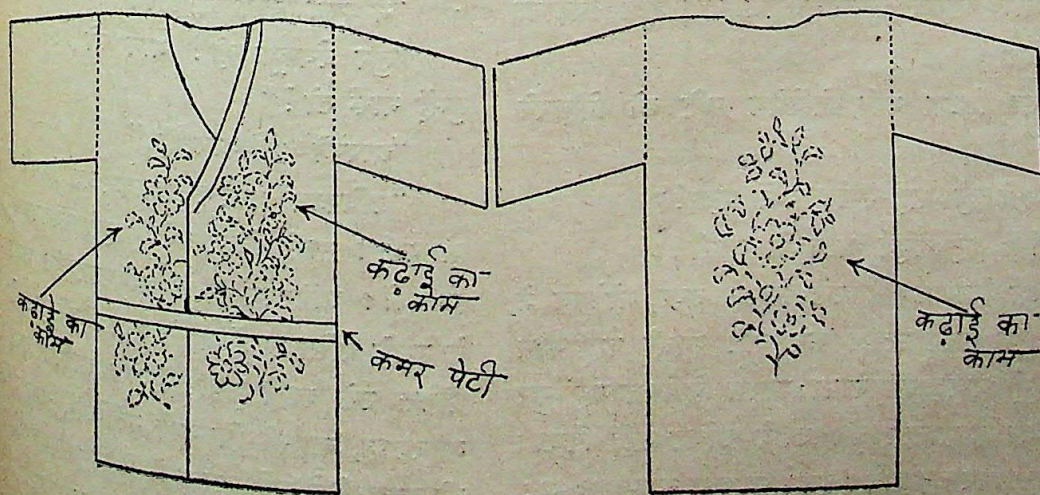 कढ़ाई का
काम
कढ़ाई का
काम
कमर पेटी
कढ़ाई का
काम